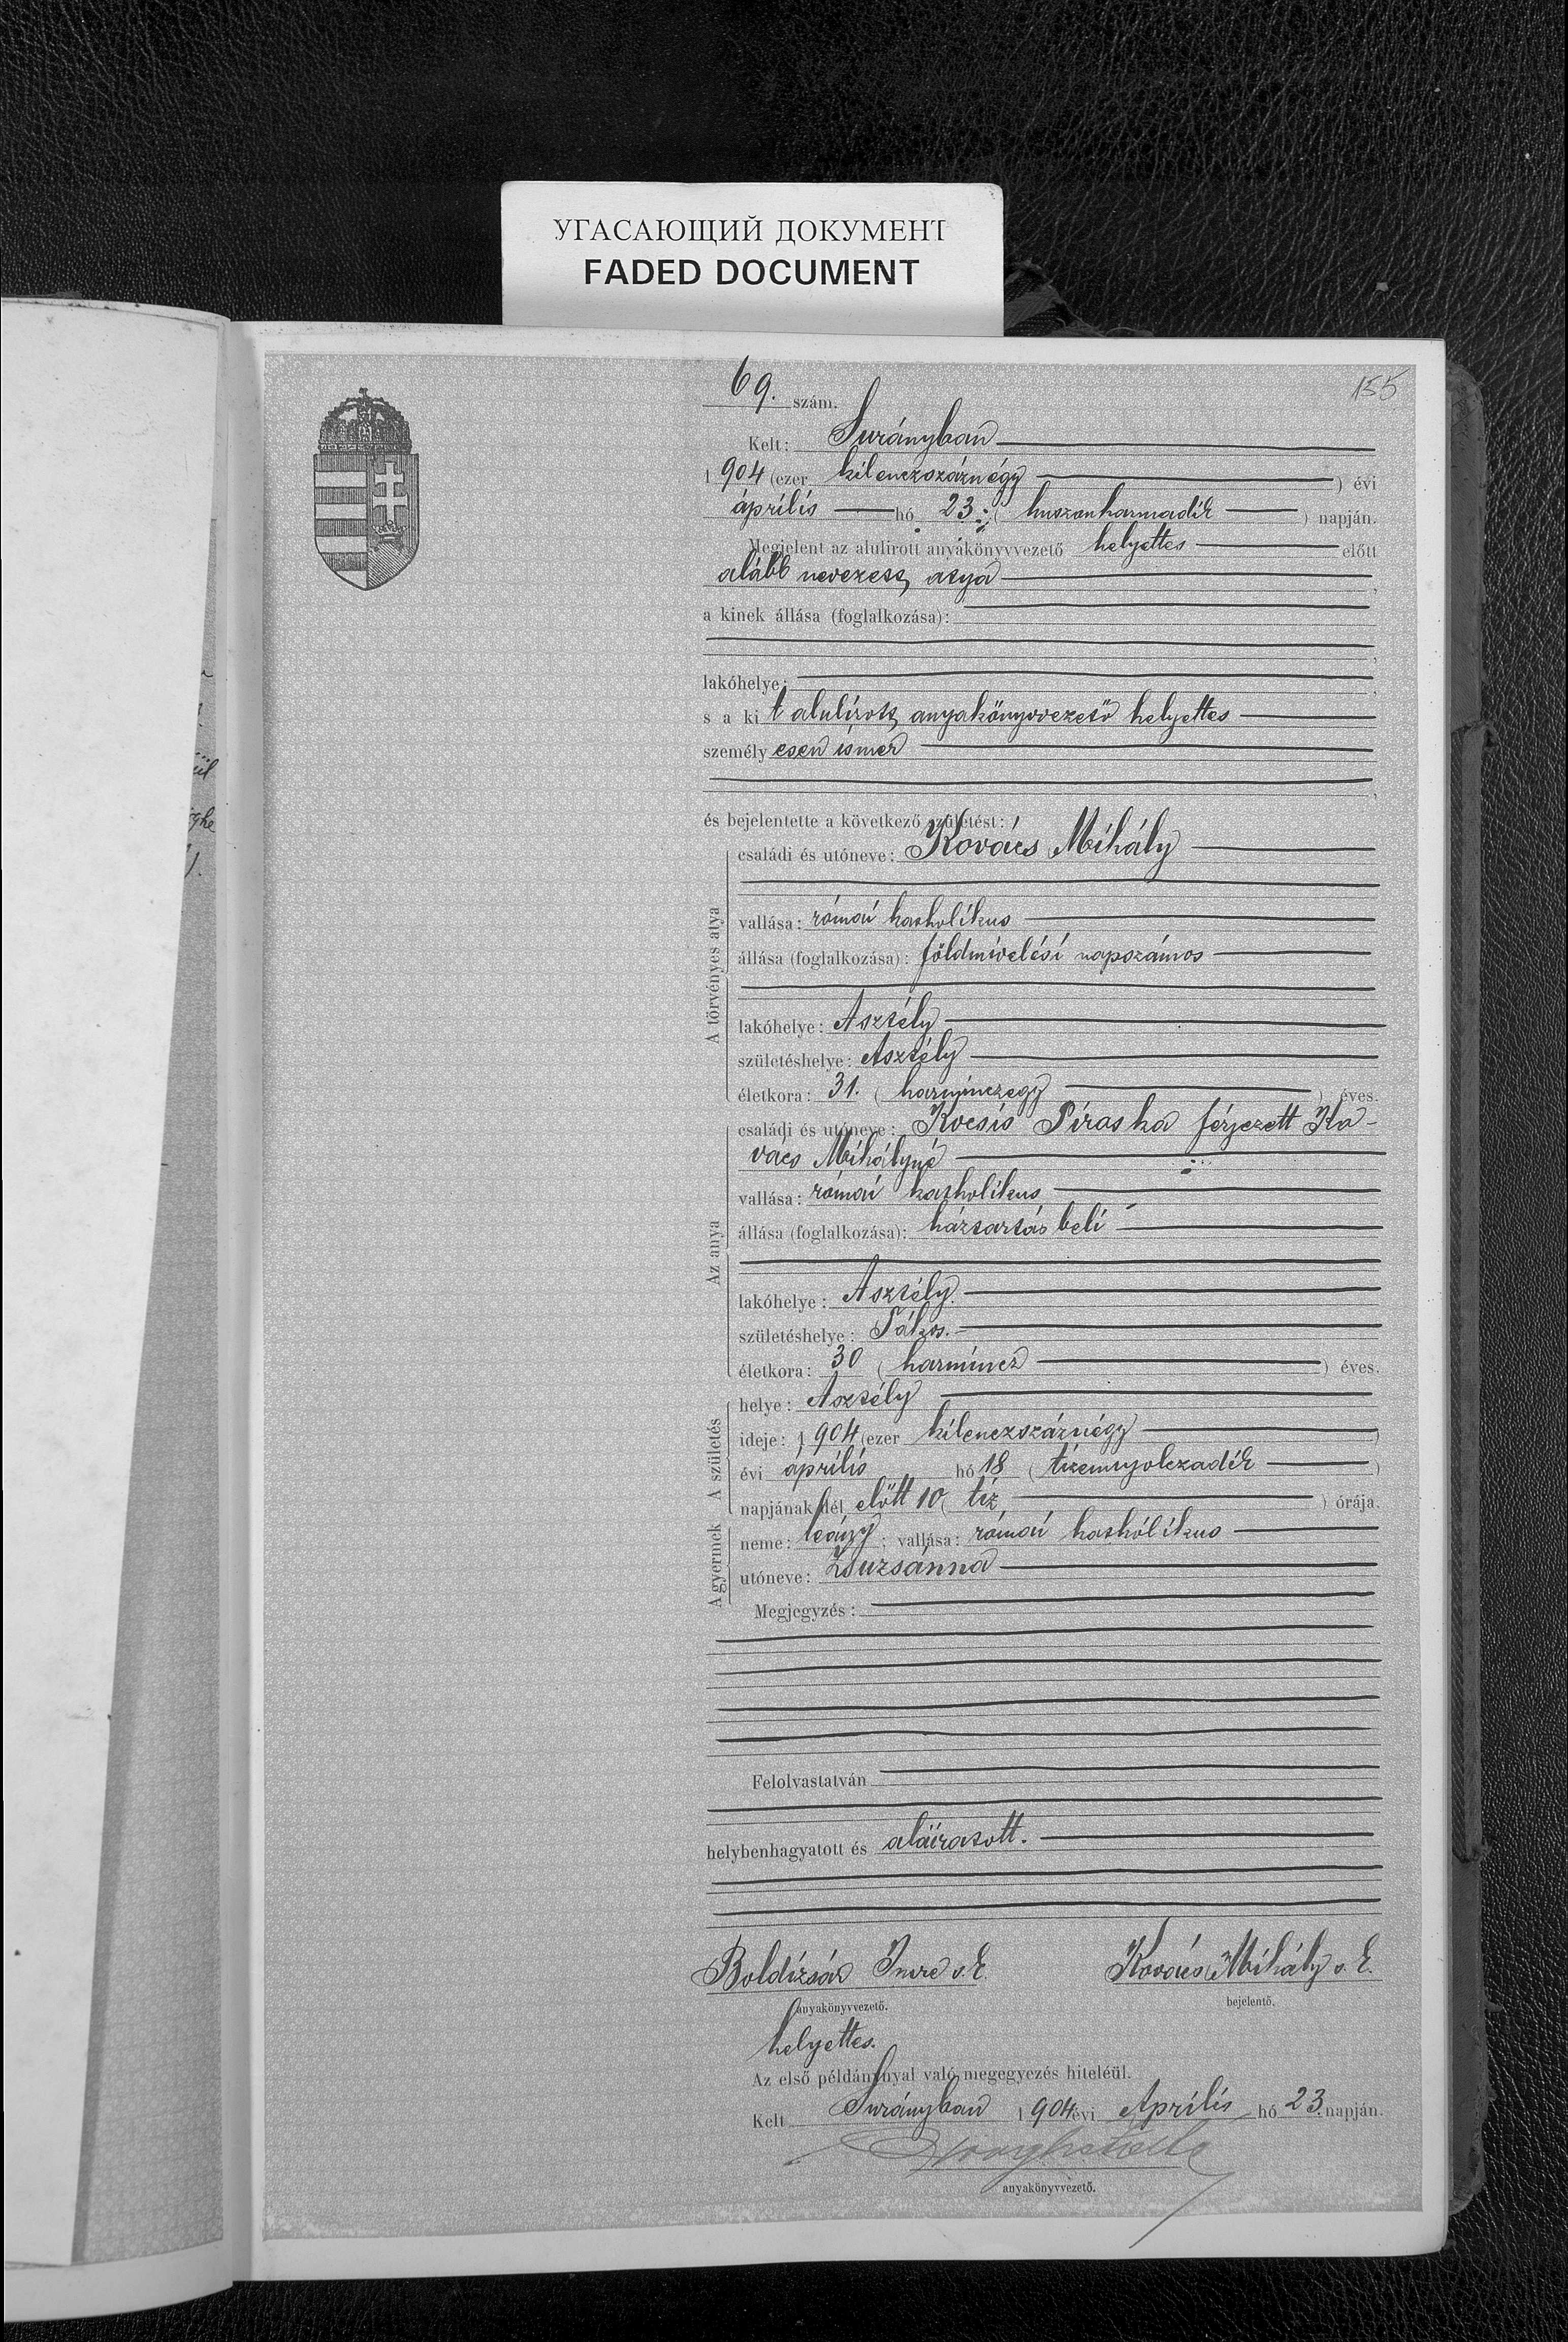 УГАСАЮЩИЙ ДОКУМЕНТ
FADED DOCUMENT
155
69. szám.
Kelt: Surányban
1904 (ezer kilenczszáznégy ) évi
április hó 23: ( huszonharmadik ) napján.
Megjelent az alulirott anyakönyvvezető helyettes előtt
alább nevezett atya ,
a kinek állása (foglalkozása):
,
lakóhelye: ,
s a kit alulirott anyakönyvvezető helyettes
személyesen ismer
,
és bejelentette a következő születést:
A törvényes atya
családi és utóneve: Kovács Mihály
vallása: római katholikus
állása (foglalkozása): földmivelési napszámos
lakóhelye: Asztély
születéshelye: Asztély
életkora: 31. ( harminczegy ) éves.
Az anya
családi és utóneve: Kocsis Piroska férjezett Ko-
vács Mihályné
vallása: római katholikus
állása (foglalkozása): háztartásbeli
lakóhelye: Asztély.
születéshelye:
életkora: 30 ( harmincz ) éves.
A születés
helye: Asztély
ideje: 1904 (ezer kilenczszáznégy )
évi április hó 18 ( tizennyolczadik )
napjának dél előtt 10 ( tiz ) órája.
A gyermek
neme: leány; vallása: római katholikus
utóneve: Zsuzsánna
Megjegyzés:
Felolvastatván
helybenhagyatott és aláiratott.
Boldizsár Imre s. k. Kovács Mihály s. k.
anyakönyvvezető. bejelentő.
helyettes.
Az első példánynyal való megegyezés hiteléül.
Kelt Surányban 1904 évi Április hó 23. napján.
anyakönyvvezető.